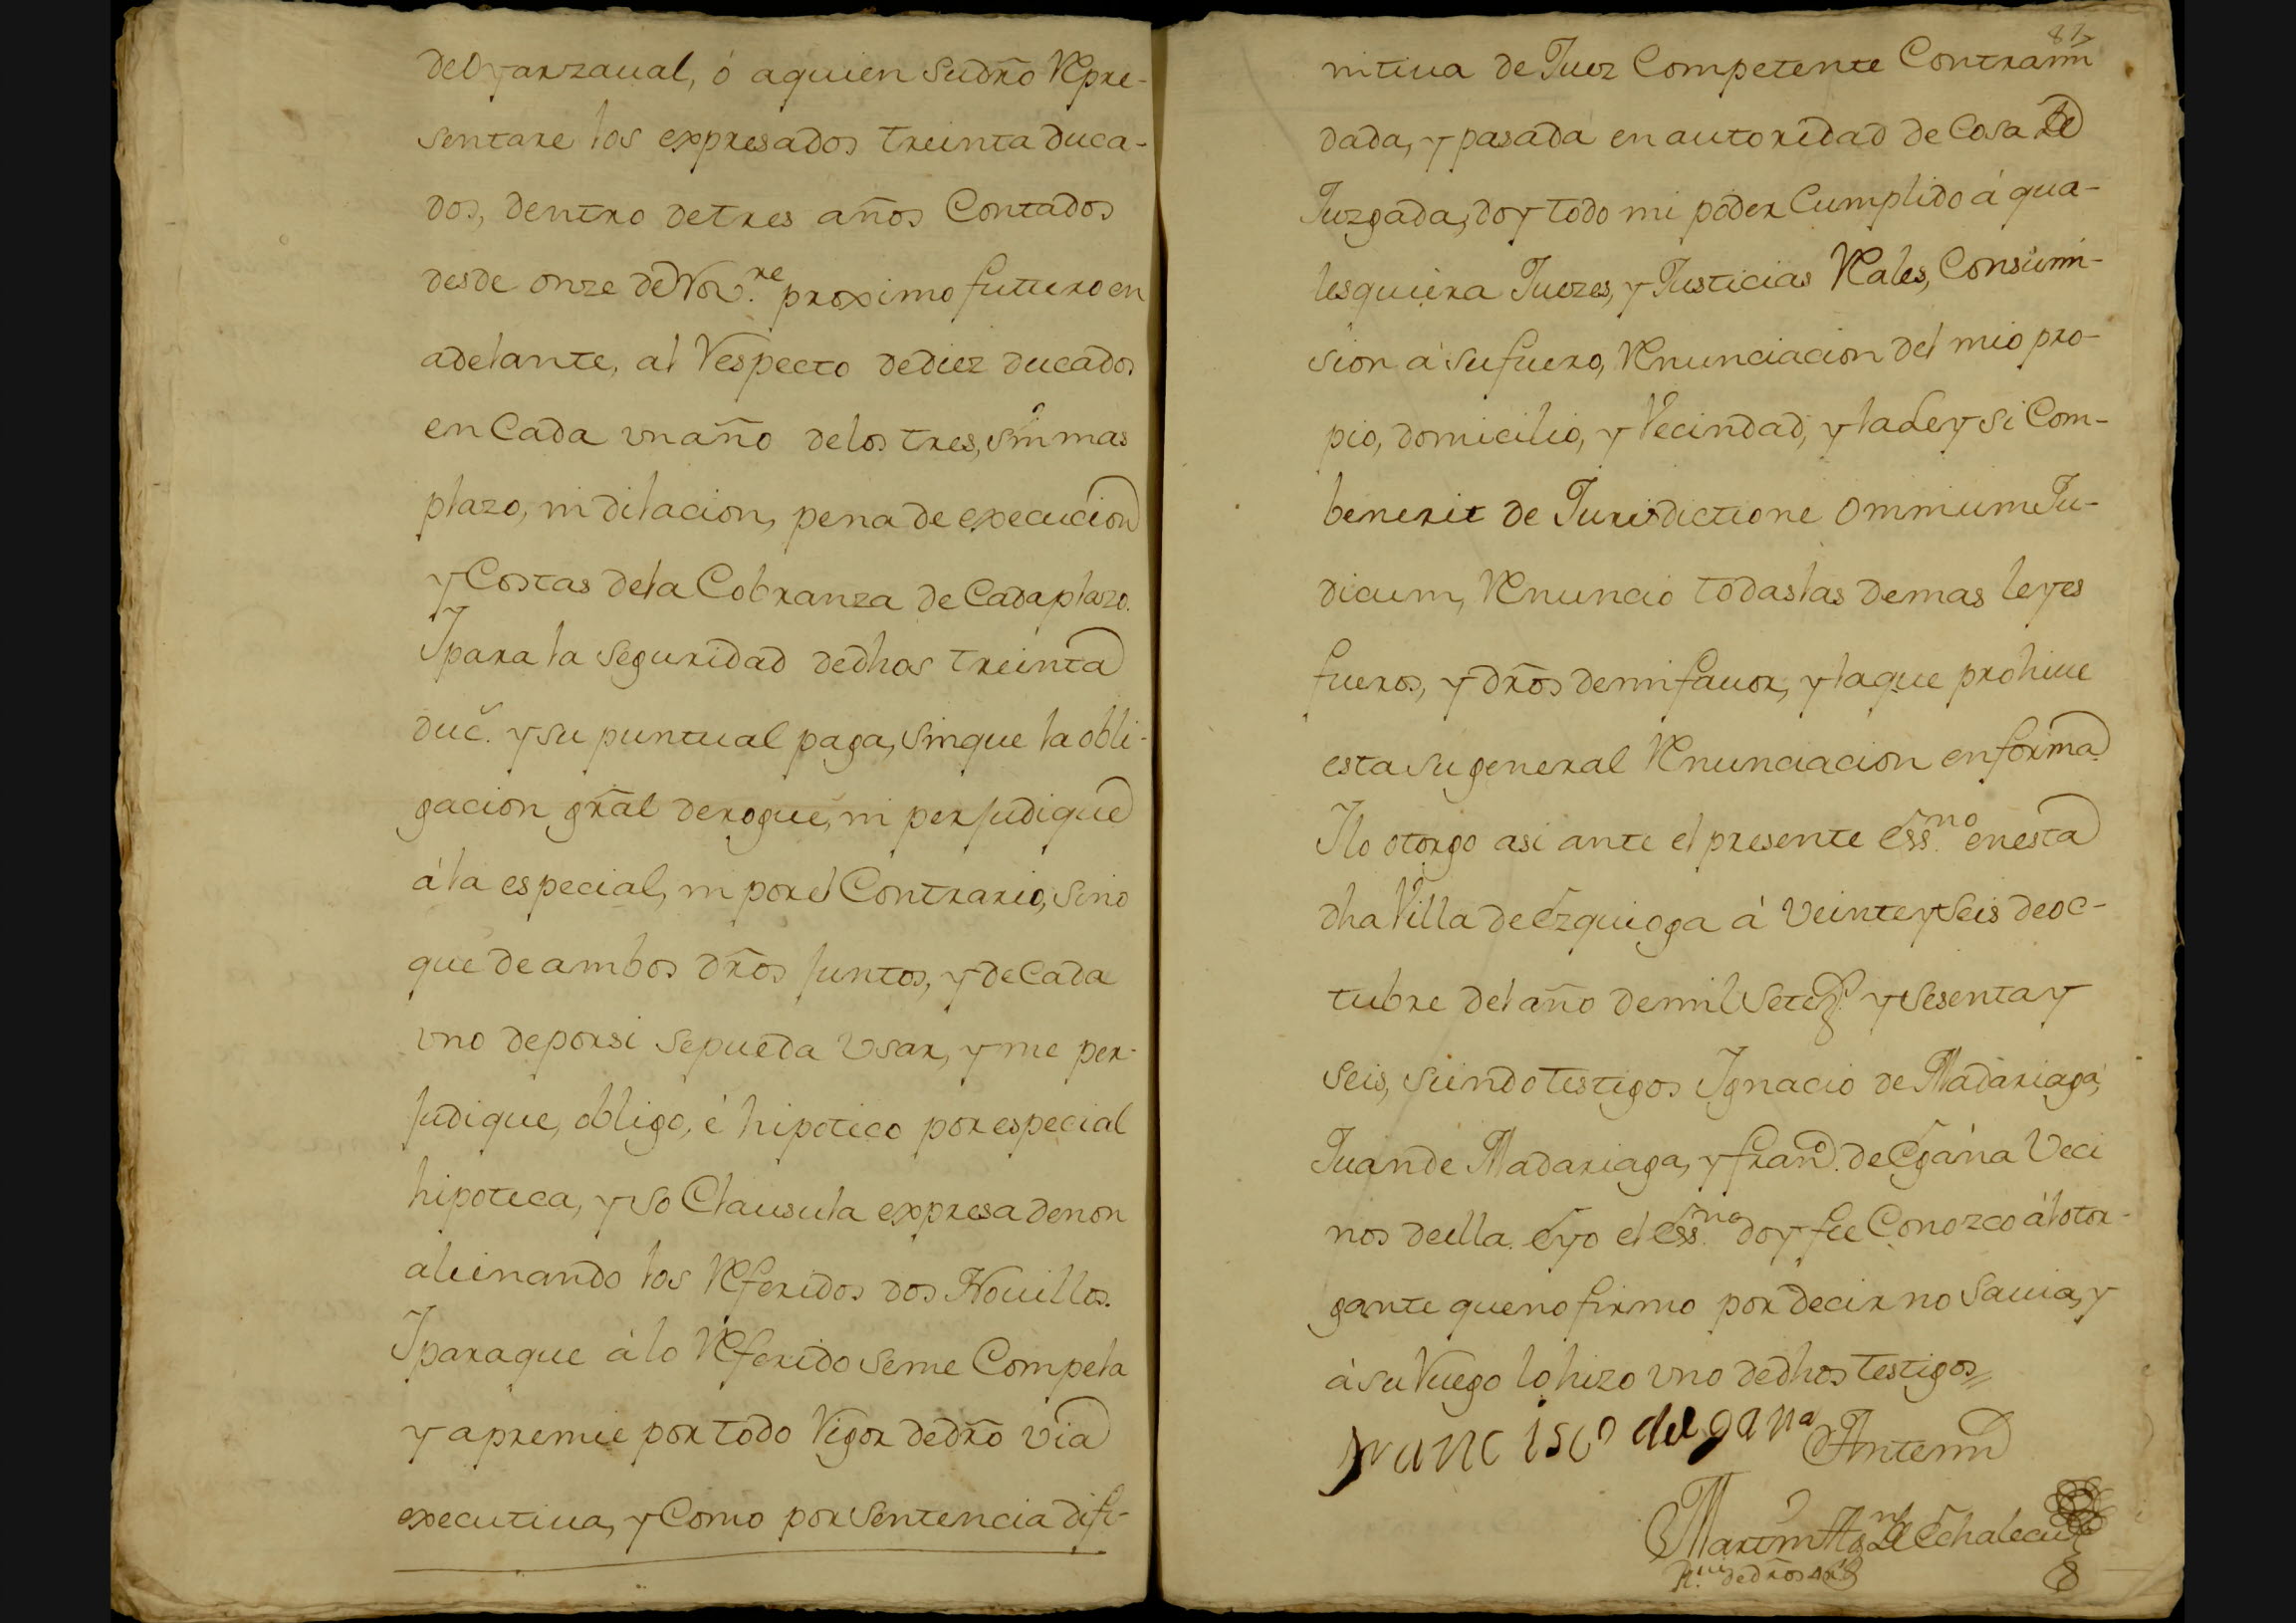 de Oyarzaual, ó aquien Sudrõ Repre-
sentare los expresados treinta duca-
dos, dentro detres años Contados
desde onze deNov.re proximo futuro en
adelante, al Respecto dediez ducados
en Cada vn año delos tres, sin mas
plazo, ni dilacion, pena de execucion
y Costas dela Cobranza de Cadaplazo.
Ypara la Seguridad dedhos treinta
duc. y su puntual paga, sinque la obli-
gacion grãl derogue, ni perjudique
á la especial, ni por el Contrario, sino
que de ambos drõs juntos, y de Cada
vno deporsi sepueda Vsar, y me per-
judique, obligo, é hipoteco por especial
hipoteca, y so Clausula expresa denon
alienando los Referidos dos Nouillos.
Yparaque á lo Referido seme Compela
y apremie por todo Rigor dedrõ via
executiua, y Como por Sentencia difi-
87
nitiua de Juez Competente Contrami
dada, y pasada en autoridad de Cosa
Juzgada, doy todo mi poder Cumplido á qua-
lesquiera Juezes, y Justicias Reales, Consumi-
sion á sufuero, Renunciacion del mio pro-
pio, domicilio, y Vecindad, y laLey Si Com-
benerit de Jurisdictione omnium Ju-
dicum, Renuncio todaslas demas leyes
fueros, y drõs demi fauor, y laque prohiue
esta su general Renunciacion enforma
Ylo otorgo asi ante el presente ess.no enesta
dha Villa deEzquioga á Veinteyseis deoc-
tubre del año demil Setez.s y Sesentay
Seis, siendo testigos Ygnacio de Madariaga,
Juande Madariaga, y Fran.co deEgána Veci
nos deella. Eyo el ess.no doy fee Conozco álotor-
gante queno firmo por decir no Sauia, y
á su Ruego lo hizo vno dedhos testigos
Francisco deegana Antemi
Martin Ag.n de Echalecu
dedrõs